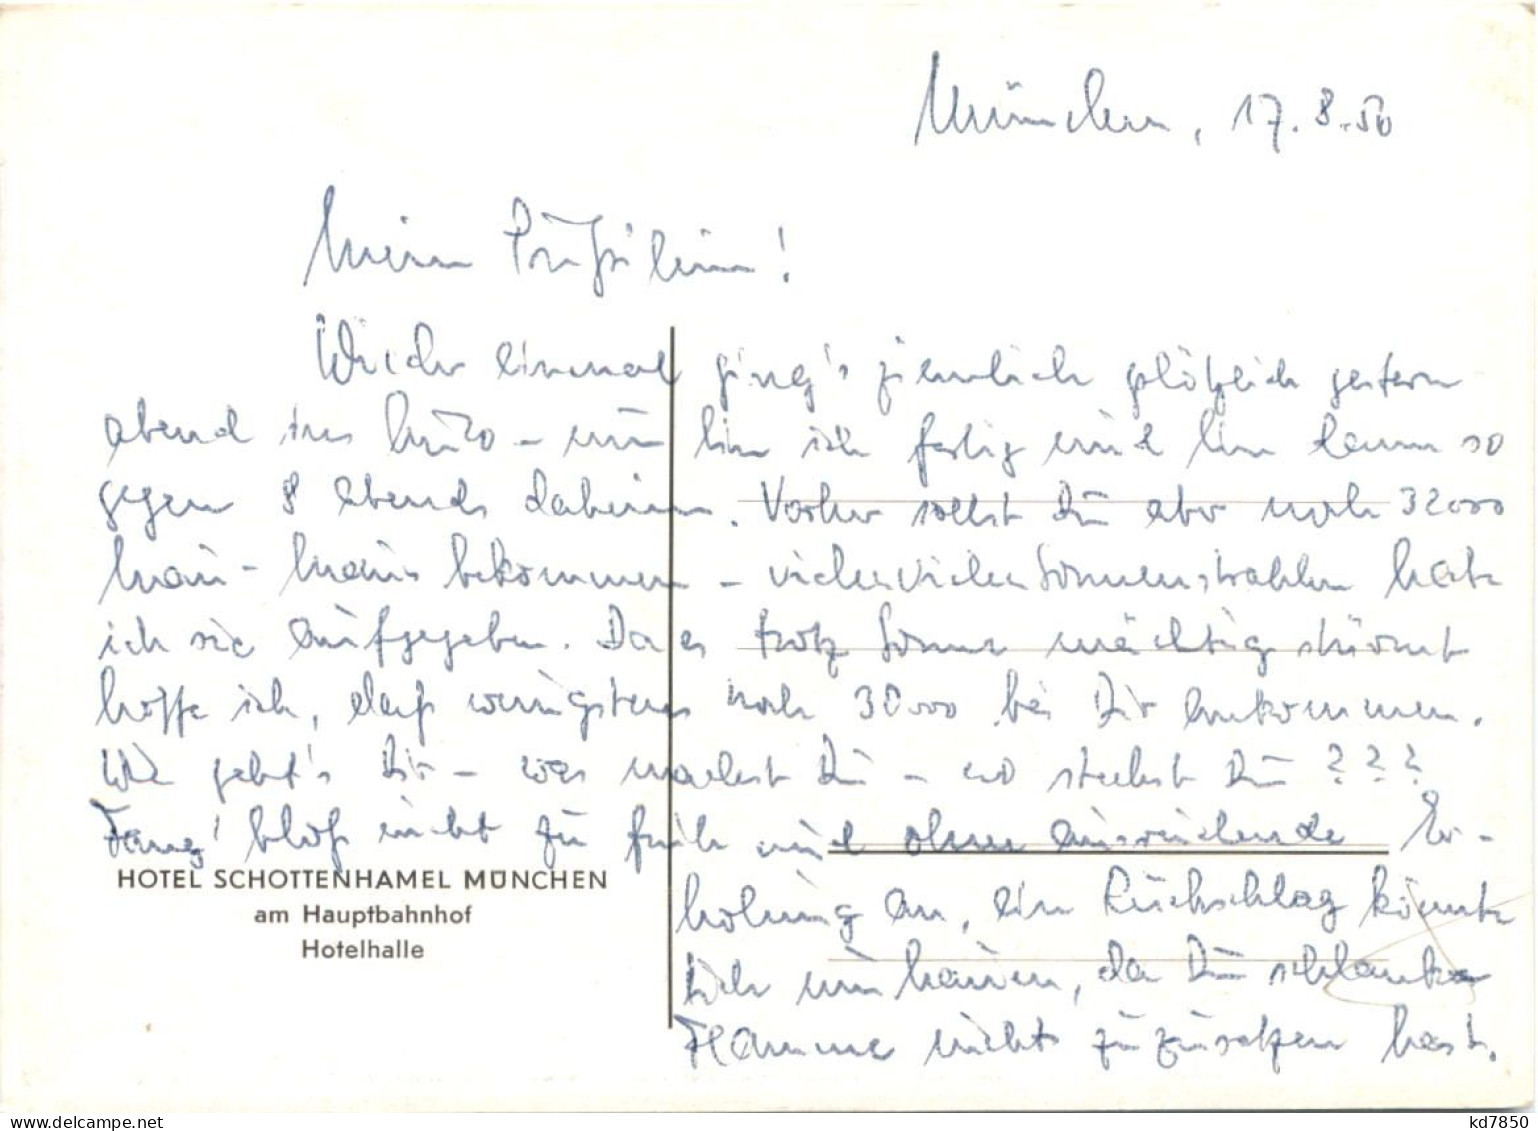 München, 17.8.50
Mein
Wieder einmal ging's ziemlich plötzlich gestern
abend ins Büro – nun bin ich fertig und bin dann so
gegen 8 abends daheim. Vorher sollst Du aber noch 32000
bekommen – vielevielen Sonnenstrahlen hab
ich sie aufgegeben. Da es trotz Sonne mächtig stürmt
hoffe ich, daß wenigstens noch 30000 bei Dir ankommen.
Wie geht's Dir – was machst Du – wo steckst Du ???
Fang' bloß nicht zu früh mit ohne ausreichende Er-
HOTEL SCHOTTENHAMEL MÜNCHEN
am Hauptbahnhof
Hotelhalle
holung an, ein Rückschlag könnte
Dich umhauen, da Du schlanke
Flamme nichts zuzusetzen hast.
kd7850